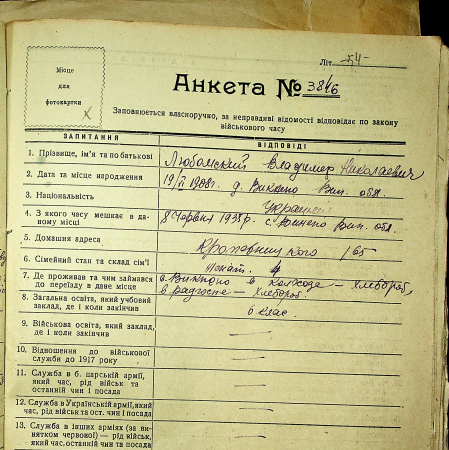 Літ. 54-
Місце
для
фотокартки
Анкета № 3846
Заповнюється власноручно, за неправдиві відомості відповідає по закону
військового часу
ЗАПИТАННЯ
ВІДПОВІДІ
1. Прізвище, ім'я та по батькові
Любомский Владимер Николаевич
2. Дата та місце народження
1908 г. д. Вин. обл.
3. Національність
Украинец
4. З якого часу мешкає в да-
ному місці
8 Червня 1938 р. с. Вин. обл.
5. Домашня адреса
165
6. Сімейний стан та склад сім'ї
Женат. 4
7. Де проживав та чим займався
до переїзду в дане місце
в колгосде — хлебороб,
в радгоспе — хлебороб.
8. Загальна освіта, який учбовий
заклад, де і коли закінчив
6 клас
9. Військова освіта, який заклад,
де і коли закінчив
10. Відношення до військової
служби до 1917 року
11. Служба в б. царській армії,
який час, рід військ та
останній чин і посада
12. Служба в Українській армії, який
час, рід військ та ост. чин і посада
13. Служба в інших арміях (за ви-
нятком червоної) — рід військ,
який час, останній чин та посада